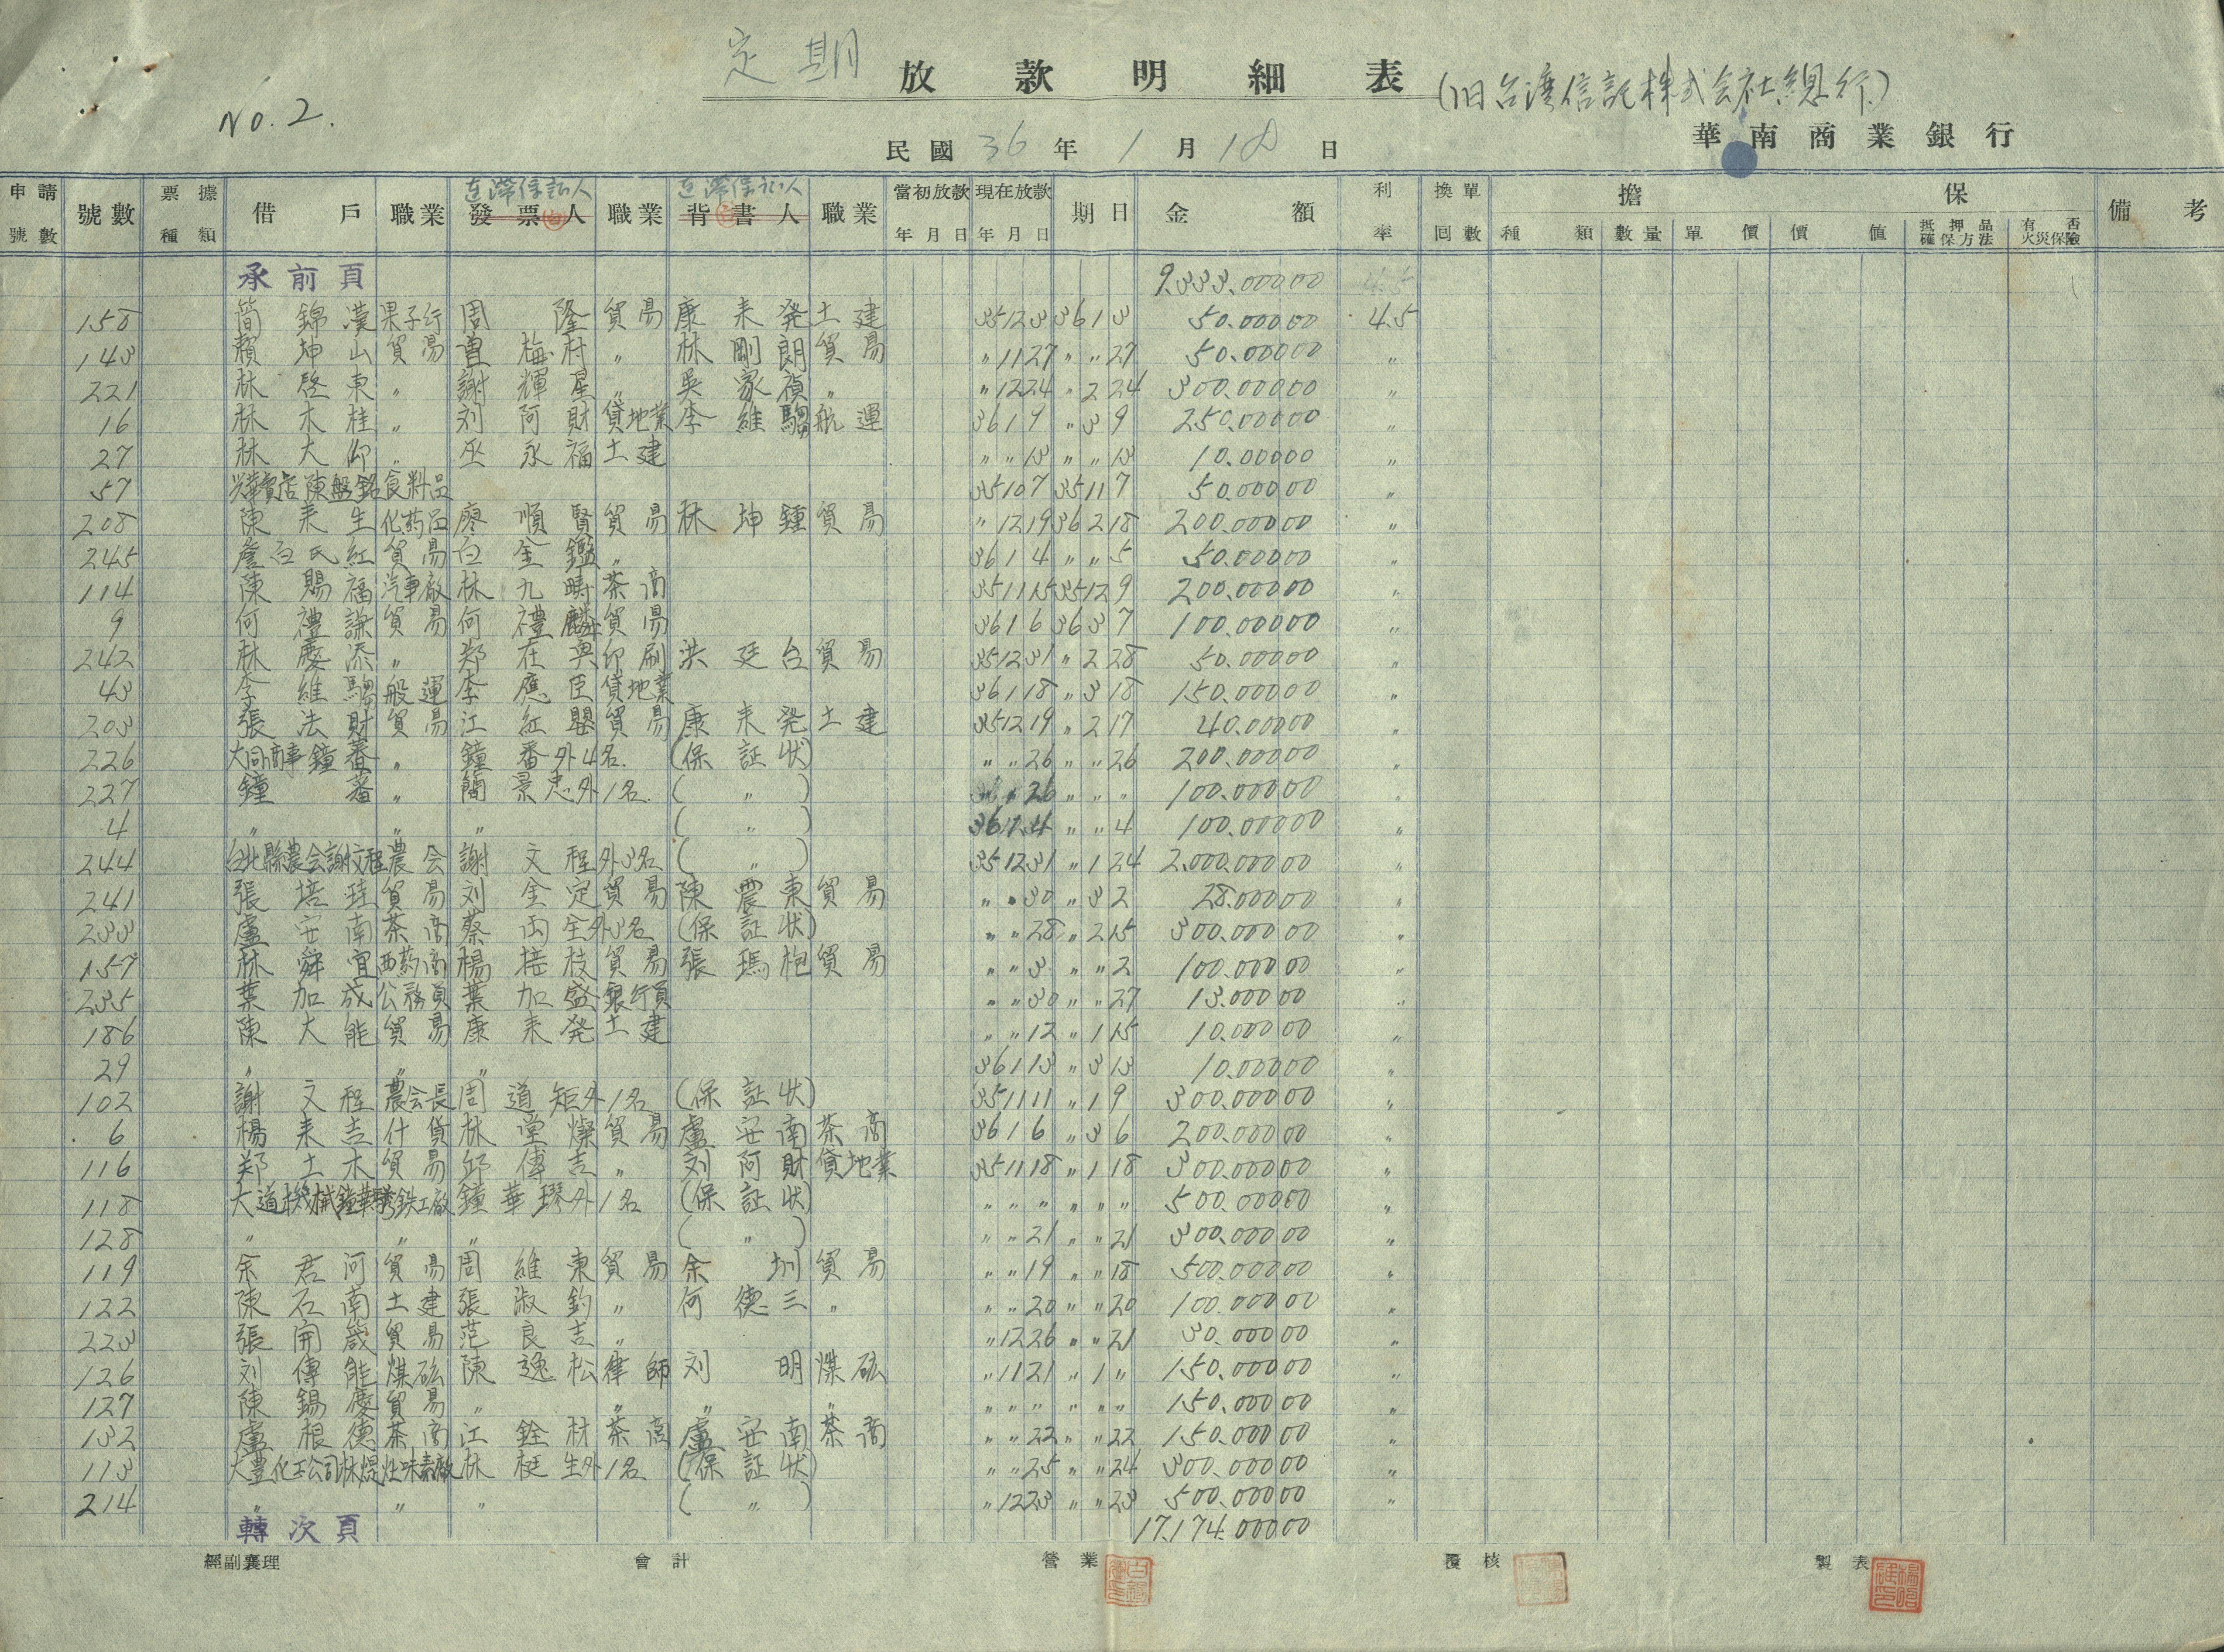 定期 放款明細表 (旧台湾信託株式会社總行)
No. 2.
華南商業銀行
民國 36 年 1 月 18 日
申請號數 號數 票據種類 借戶 職業 發票人 職業 背書人 職業 當初放款年月日 現在放款年月日 期日 金額 利率 換單回數 擔保 備考
種類 數量 單價 價值 抵押品確保方法 有否火災保險
承前頁 9.333.000 00
158 簡錦漢 果子行 周隆 貿易 康来発 土建 35 12 3 36 1 3 50.000 00 4.5
143 賴坤山 貿易 曽梅村 〃 林剛朗 貿易 〃 11 27 〃 〃 27 50.000 00 〃
221 林啓東 〃 謝輝星 〃 吳家禎 〃 〃 12 24 〃 2 24 300.000 00 〃
16 林木桂 〃 刘阿財 貸地業 李維 航運 36 1 9 〃 3 9 250.000 00 〃
27 林大仰 〃 巫永福 土建 〃 〃 13 〃 〃 13 10.000 00 〃
57 陳盤銘 食料品 35 10 7 35 11 7 50.000 00 〃
208 陳来生 化药品 廖順賢 貿易 林坤鍾 貿易 〃 12 19 36 2 18 200.000 00 〃
245 詹白氏紅 貿易 白金鑑 〃 36 1 4 〃 〃 5 50.000 00 〃
114 陳賜福 汽車廠 林九疇 茶商 35 11 15 35 12 9 200.000 00 〃
9 何禮謙 貿易 何禮麟 貿易 36 1 6 36 3 7 100.000 00 〃
242 林慶添 〃 郑在興 印刷 洪廷台 貿易 35 12 31 〃 2 28 50.000 00 〃
43 李維 般運 李應臣 貸地業 36 1 18 〃 3 18 150.000 00 〃
203 張法財 貿易 江紅嬰 貿易 康来発 土建 35 12 19 〃 2 17 40.000 00 〃
226 大同商事鐘蕃 〃 鐘番外4名. (保証状) 〃 〃 26 〃 〃 26 200.000 00 〃
227 鐘蕃 〃 簡景忠外1名. ( 〃 ) 〃 26 〃 〃 〃 100.000 00 〃
4 〃 〃 〃 ( 〃 ) 36 1 4 〃 〃 4 100.000 00 〃
244 台北縣農会謝文程 農会 謝文程外3名 ( 〃 ) 35 12 31 〃 1 24 2.000.000 00 〃
241 張培珪 貿易 刘金定 貿易 陳震東 貿易 〃 〃 30 〃 3 2 28.000 00 〃
233 盧安南 茶商 蔡雨全外3名 (保証状) 〃 〃 28 〃 2 15 300.000 00 〃
157 林舜宜 西药商 楊接枝 貿易 張瑪枹 貿易 〃 〃 3 〃 〃 2 100.000 00 〃
235 葉加成 公務員 葉加盛 銀行員 〃 〃 30 〃 〃 27 13.000 00 〃
186 陳大能 貿易 康来発 土建 〃 〃 12 〃 1 15 10.000 00 〃
29 〃 〃 36 1 13 〃 3 13 10.000 00 〃
102 謝文程 農会長 周道矩外1名 (保証状) 35 11 11 〃 1 9 300.000 00 〃
6 楊来吉 什貨 林堂燦 貿易 盧安南 茶商 36 1 6 〃 3 6 200.000 00 〃
116 郑土木 貿易 邱傳吉 〃 刘阿財 貸地業 35 11 18 〃 1 18 300.000 00 〃
118 大道機械鐘華璆 鉄工廠 鐘華璆外1名 (保証状) 〃 〃 〃 〃 〃 〃 500.000 00 〃
128 〃 〃 〃 ( 〃 ) 〃 〃 21 〃 〃 21 300.000 00 〃
119 余君河 貿易 周維東 貿易 余圳 貿易 〃 〃 19 〃 〃 18 500.000 00 〃
122 陳石南 土建 張淑釣 〃 何德三 〃 〃 〃 20 〃 〃 20 100.000 00 〃
223 張開箴 貿易 范良吉 〃 〃 12 26 〃 〃 21 30.000 00 〃
126 刘傳能 煤砿 陳逸松 律師 刘明 煤砿 〃 11 21 〃 1 〃 150.000 00 〃
127 陳錫慶 貿易 〃 〃 〃 〃 〃 〃 〃 〃 〃 〃 150.000 00 〃
132 盧根德 茶商 江銓材 茶商 盧安南 茶商 〃 〃 22 〃 〃 22 150.000 00 〃
113 大豊化工公司林煶灶 味素廠 林梃生外1名 (保証状) 〃 〃 25 〃 〃 24 300.000 00 〃
214 〃 〃 〃 ( 〃 ) 〃 12 23 〃 〃 23 500.000 00 〃
轉次頁 17.174.000 00
經副襄理 會計 營業 覆核 製表